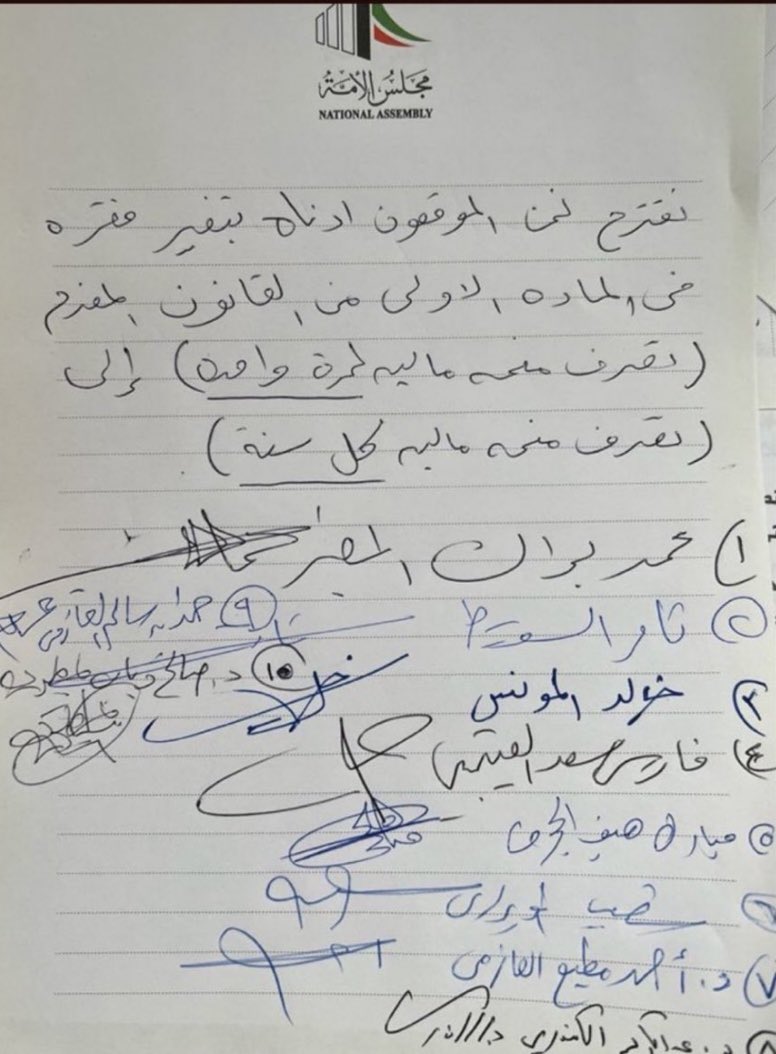 مجلس الأمة
NATIONAL ASSEMBLY
نقترح نحن الموقعون ادناه بتغير فقره
في الماده الاولى من القانون المقدم
(تصرف منحه ماليه لمرة واحدة) إلى
(تصرف منحه ماليه لكل سنة)
١) محمد براك المطير
ثامر السويط
٩ حمدان سالم العازمي
٣) خالد المونس
١٠ د. صالح
٤) فارس سعد العتيبي
٥ مبارك هيف الحجرف
شعيب المويزري
٧) د. أحمد مطيع العازمي
٨ د. عبدالكريم الكندري